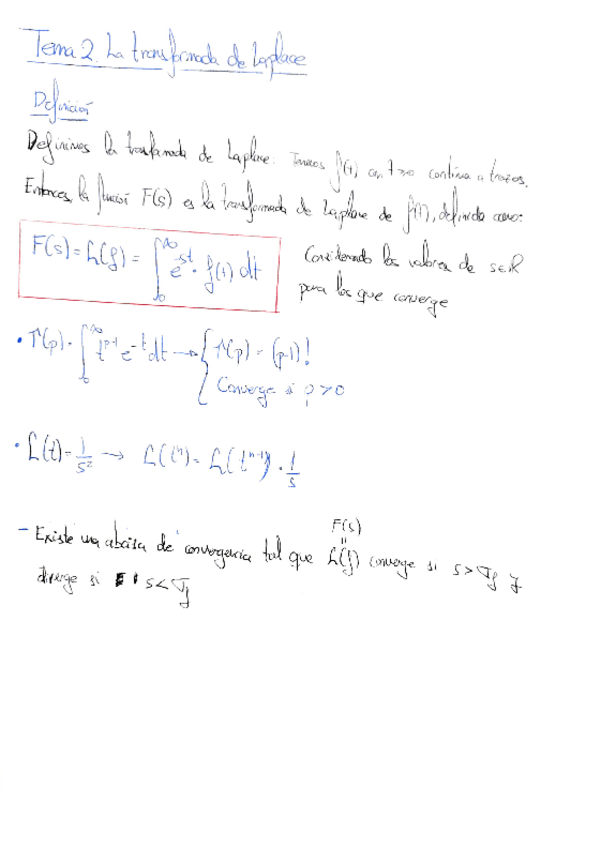 Tema 2. La transformada de Laplace
Definición
Definimos la transformada de Laplace. Tenemos f(t) con t>0 continua a trozos.
Entonces, la función F(s) es la transformada de Laplace de f(t), definida como:
F(s) = L(f) = ∫₀^∞ e^-st · f(t) dt
Considerando los valores de s∈ℝ
para los que converge
• Γ(p) = ∫₀^∞ t^p-1 e^-t dt → { Γ(p) = (p-1)!
Converge si p>0
• L(t) = 1/s² → L(t^n) = L(t^n-1) · 1/s
F(s)
=
- Existe una abcisa de convergencia tal que L(f) converge si s>σf y
diverge si s<σf